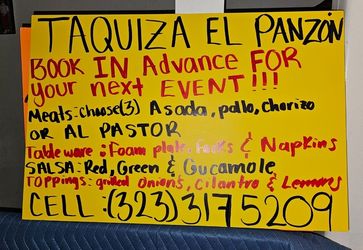 TAQUIZA EL PANZÓN
BOOK IN Advance FOR
your next EVENT!!!
Meats: choose(3) Asada, pollo, chorizo
OR AL PASTOR
Table ware: Foam plate, Forks & Napkins
SALSA: Red, Green & Gucamole
TOPPINGS: grilled onions, cilantro & Lemons
CELL: (323) 317 5209